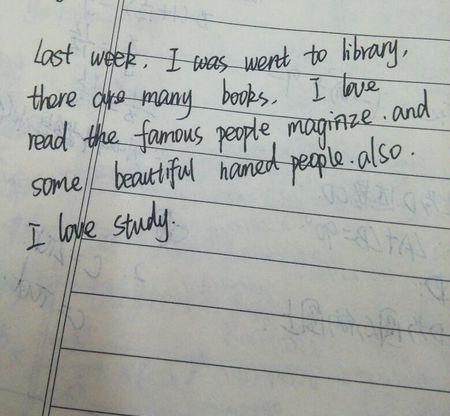 Last week. I was went to library.
there are many books. I love
read the famous people maginze. and
some beautiful hamed people. also.
I love study.